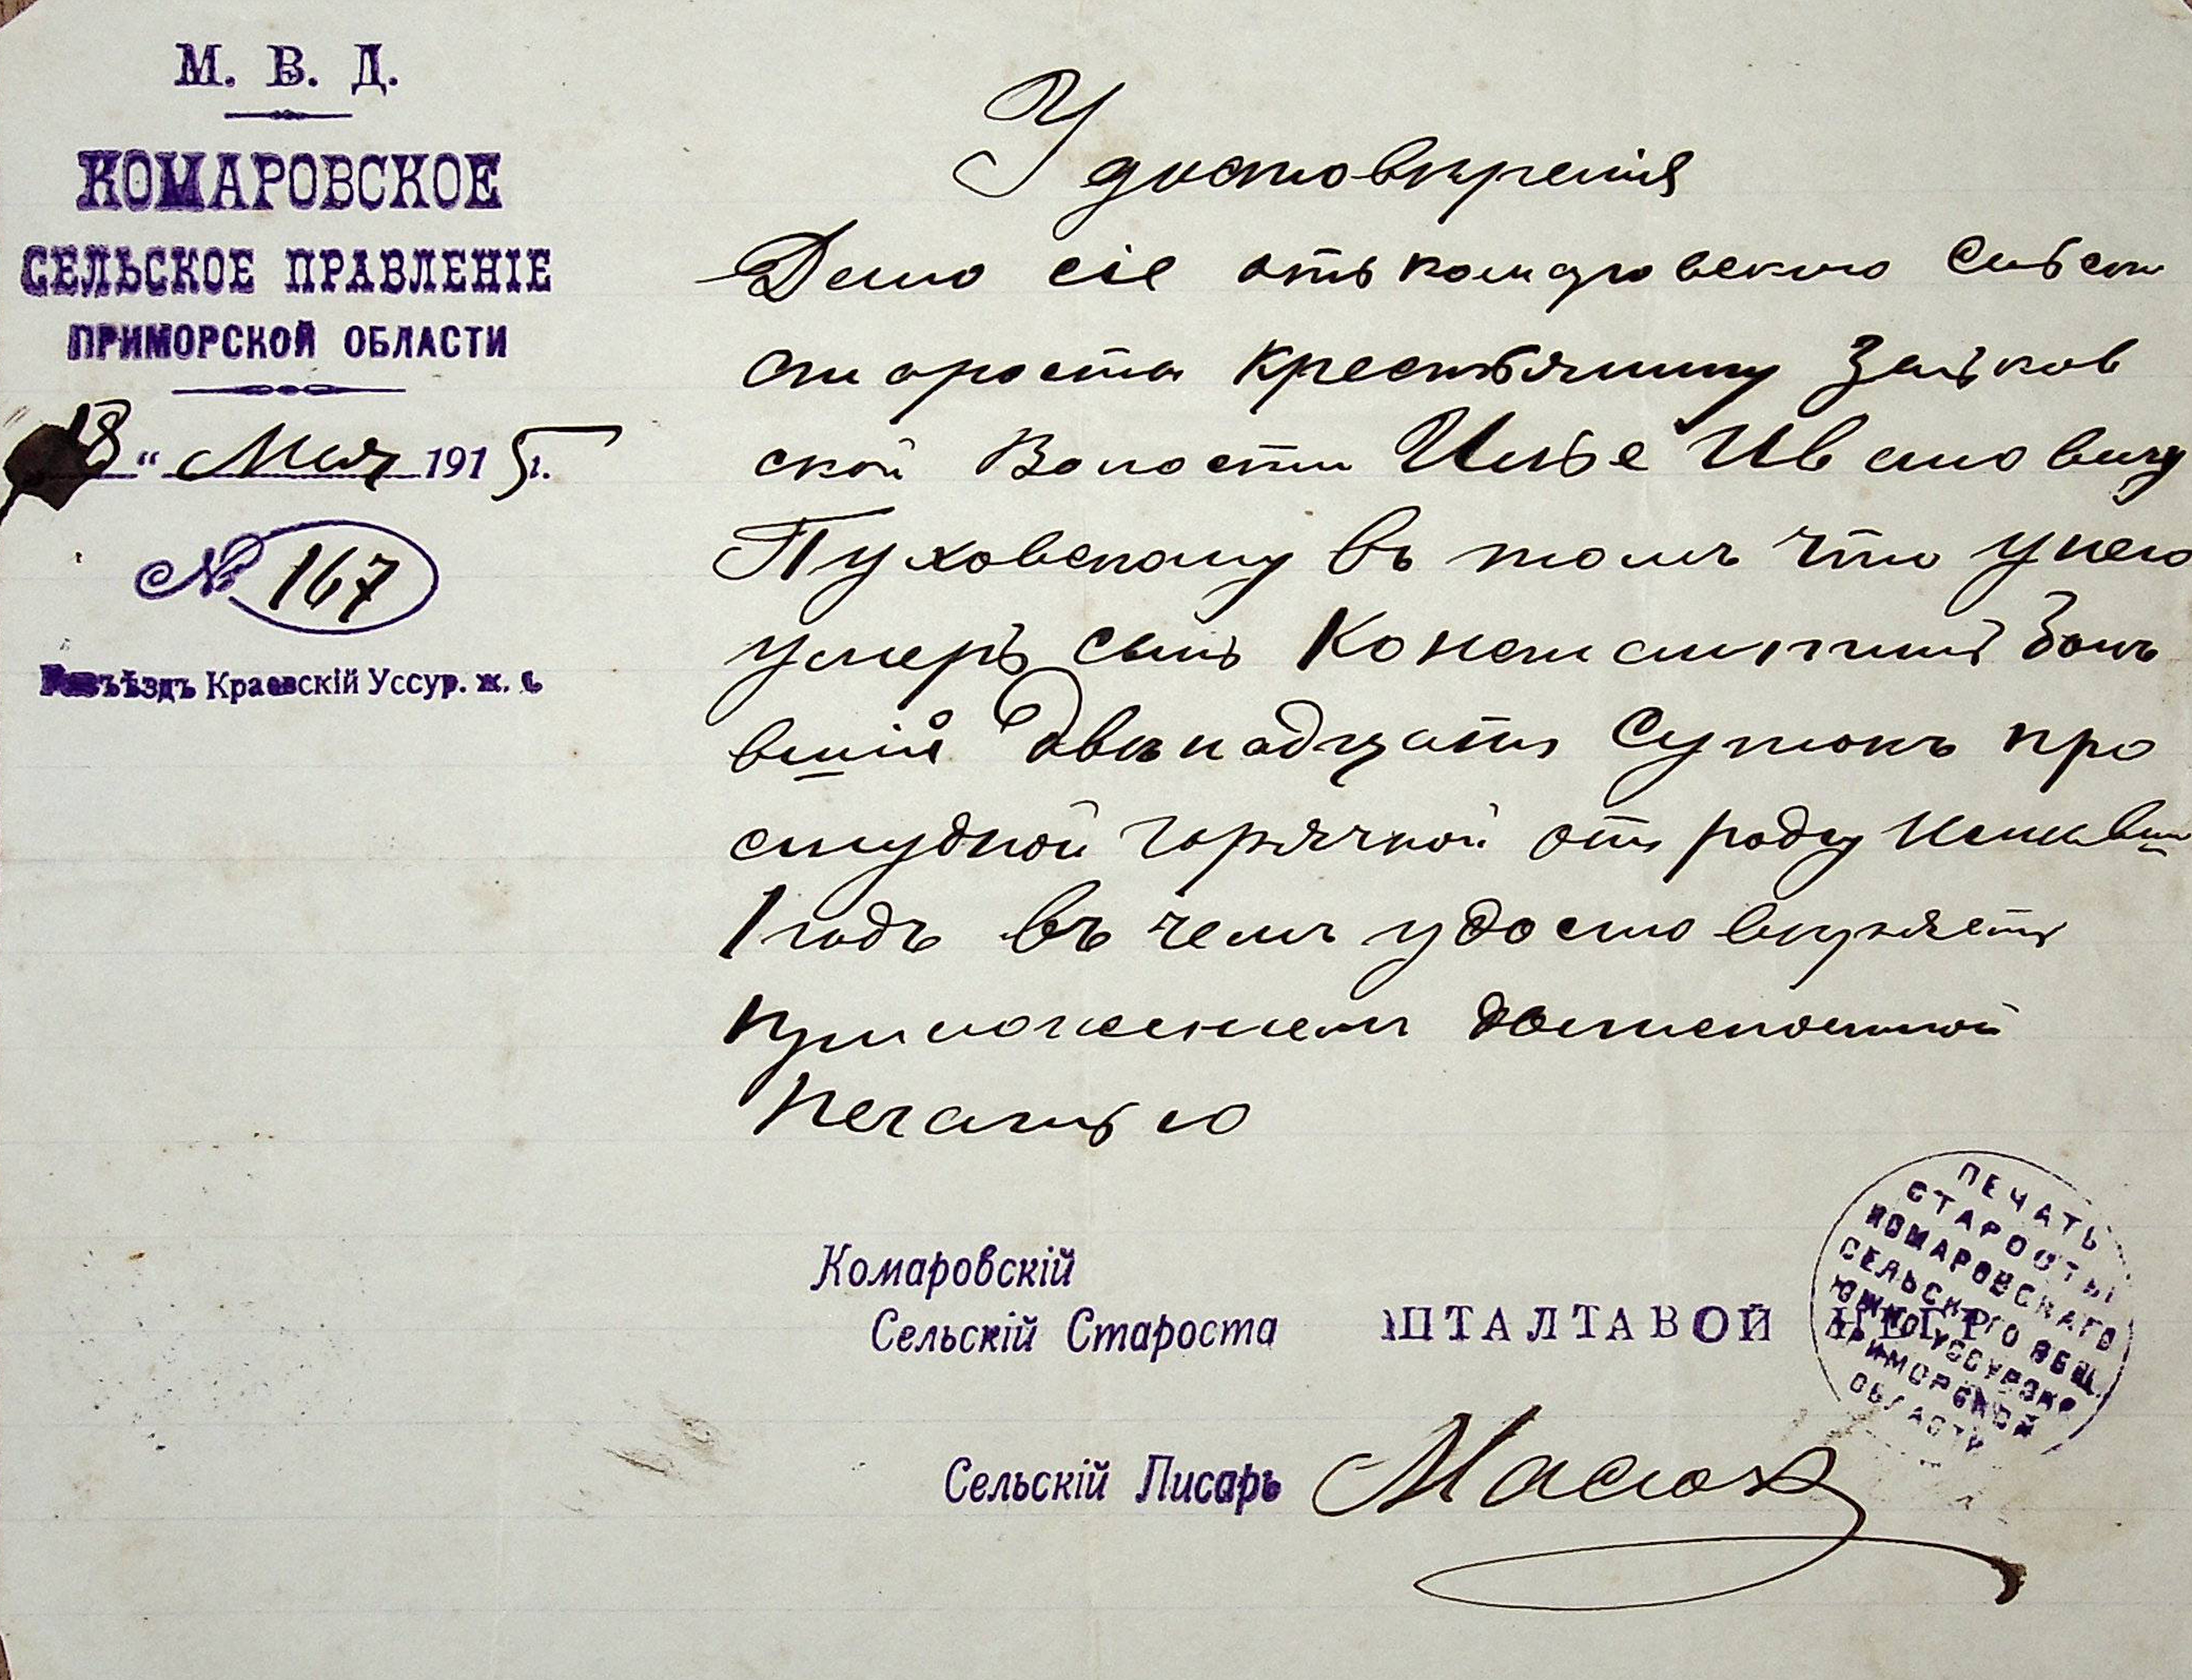 М. В. Д.
КОМАРОВСКОЕ
СЕЛЬСКОЕ ПРАВЛЕНІЕ
ПРИМОРСКОЙ ОБЛАСТИ
18 " Мая 1915 г.
№ 167
Разъѣздъ Краевскій Уссур. ж. д.
Удостовѣренія
Дано сіе отъ комаровскаго Сельск
староста крестьянину Зеньков
ской Волости Илье Иванович
Пуховскому въ томъ что у него
умеръ сынъ Константинъ Болѣ
вшій двѣнадцать Сутокъ про
студной горячкой отъ роду
1 годъ въ чемъ удостовѣряетъ
приложеніемъ должностной
печатью
Комаровскій
Сельскій Староста ШТАЛТАВОЙ
Сельскій Писарь
ПЕЧАТЬ
СТАРОСТЫ
КОМАРОВСКАГО
СЕЛЬСКАГО ОБЩ.
ЮЖНО УССУРІЙ
ПРИМОРСКОЙ
ОБЛАСТИ